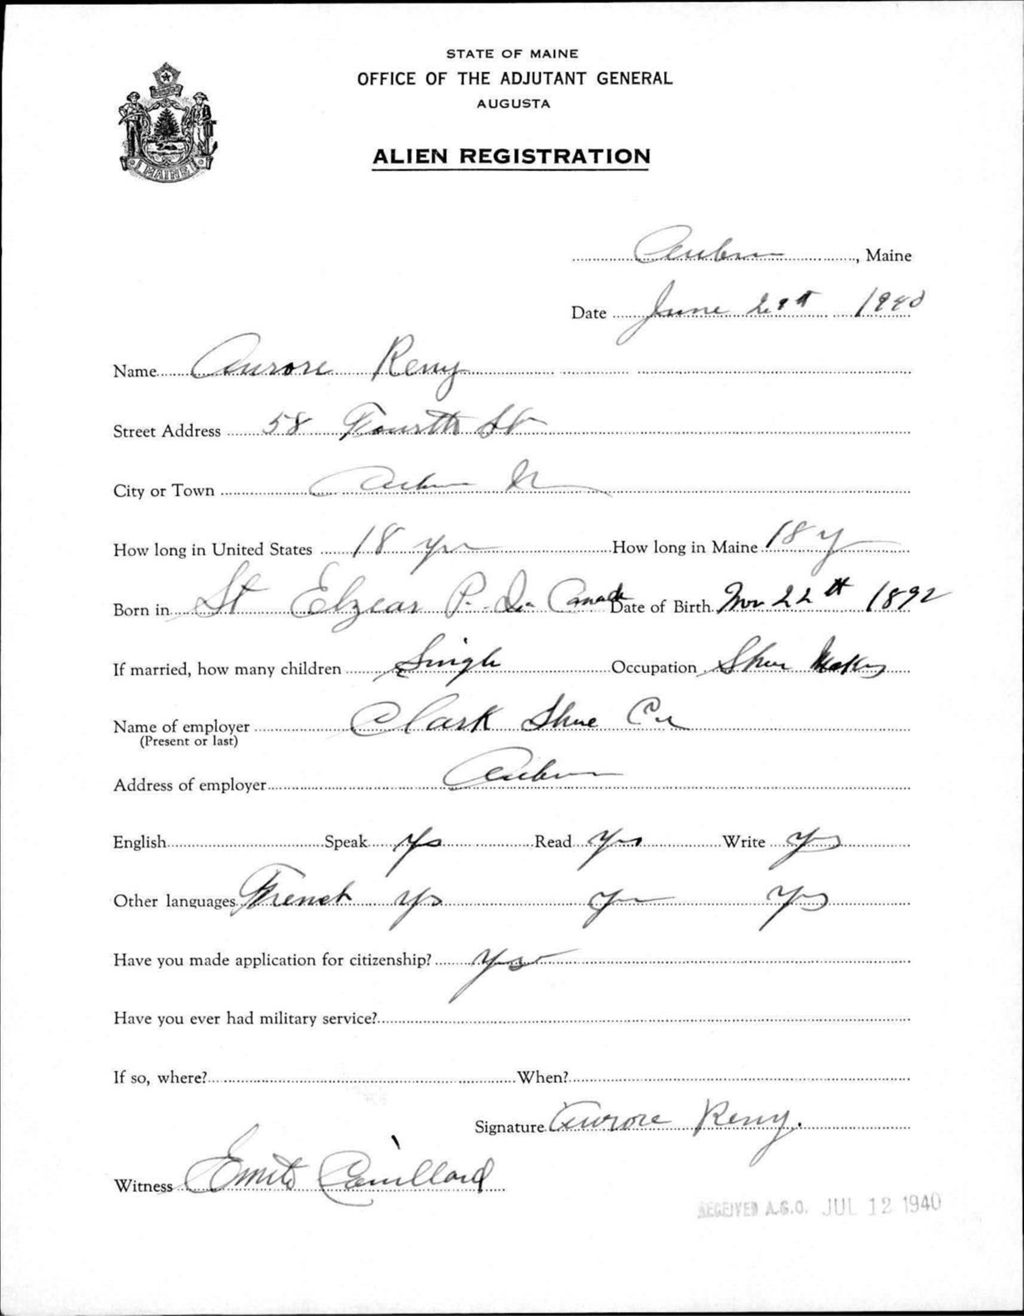 STATE OF MAINE
OFFICE OF THE ADJUTANT GENERAL
AUGUSTA
ALIEN REGISTRATION
MAINE
Auburn, Maine
Date June 29th 1940
Name Aurore Remy
Street Address 58 Fourth St
City or Town Auburn
How long in United States 18 yrs How long in Maine 18 y
Born in St Elzear P. Q. Canada Date of Birth Nov 22th 1892
If married, how many children Single Occupation Shoe
Name of employer Clark Shoe Co
(Present or last)
Address of employer Auburn
English Speak Yes Read Yes Write Yes
Other languages French Yes Yes Yes
Have you made application for citizenship? Yes
Have you ever had military service?
If so, where? When?
Signature Aurore Remy.
Witness
RECEIVED A.G.O. JUL 12 1940